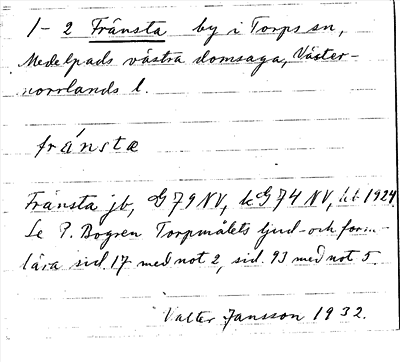 1-2 Fränsta by i Torps sn,
Medelpads västra domsaga, Väster-
norrlands l.
fránstæ
Fränsta jb, G79NV, kG74NV, kb 1924.
Se P. Bogren Torpmålets ljud- och form-
lära sid. 17 med not 2, sid. 93 med not 5.
Valter Jansson 1932.